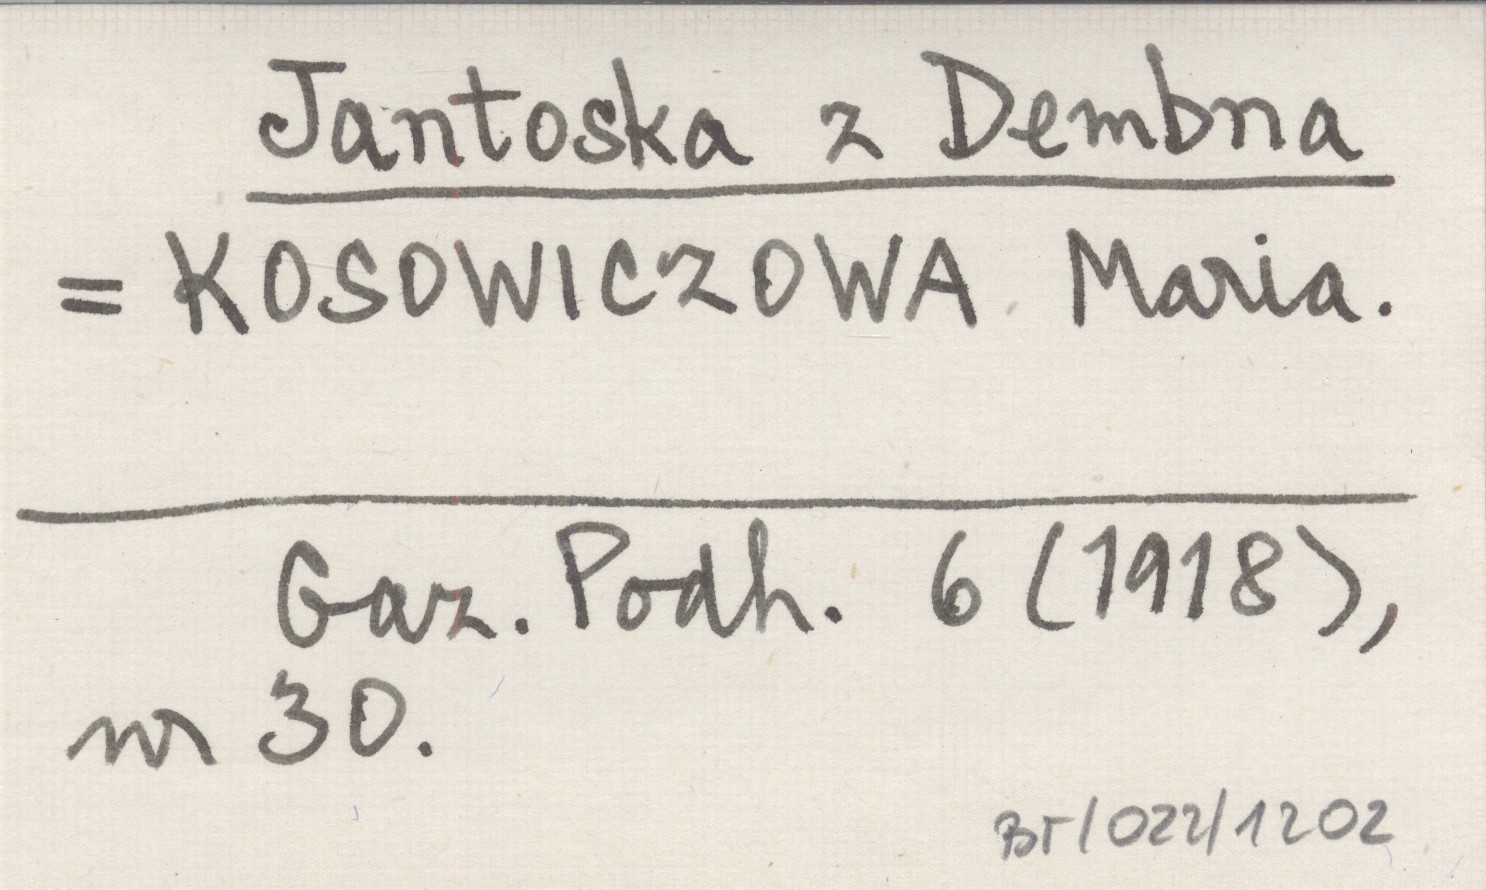 Jantoska z Dembna
= KOSOWICZOWA Maria.
Gaz. Podh. 6 (1918),
nr 30.
BT/022/1202